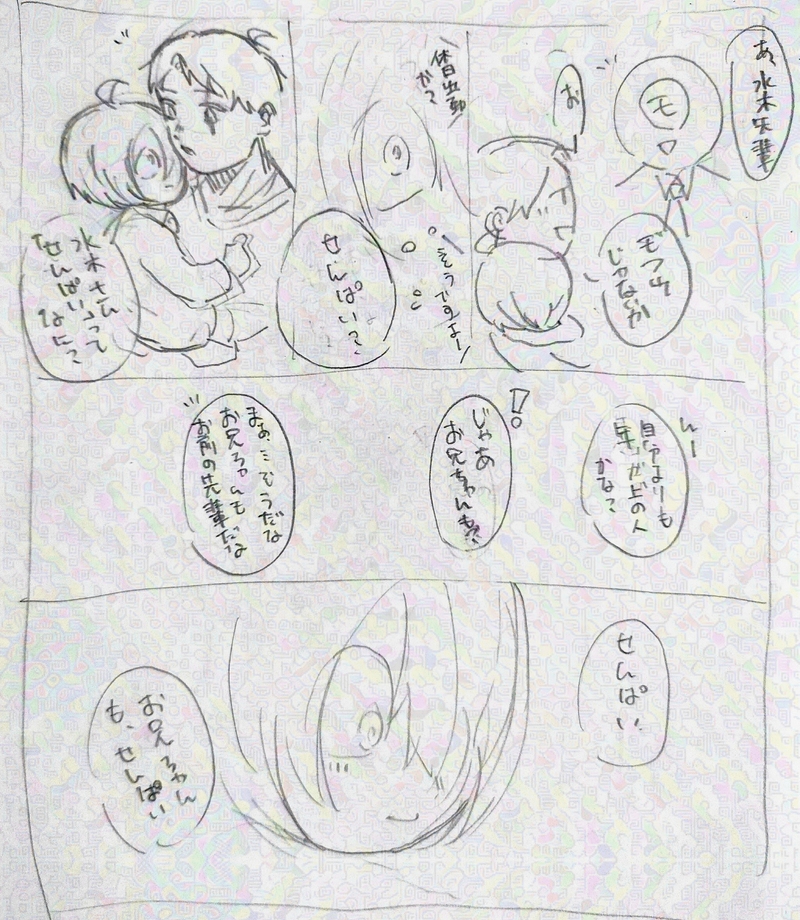 あ、水木先輩
モ
モブ山
じゃないか
お
休日出勤
かっ?
そうですよー
せんぱいっ、
水木さん
せんぱいって
なに?
んー
自分よりも
年が上の人
かな?
!
じゃあ
お兄ちゃんも?
まぁ…そうだな
お兄ちゃんもだな
お前の先輩だな
せんぱい
お兄ちゃん
も、せんぱい